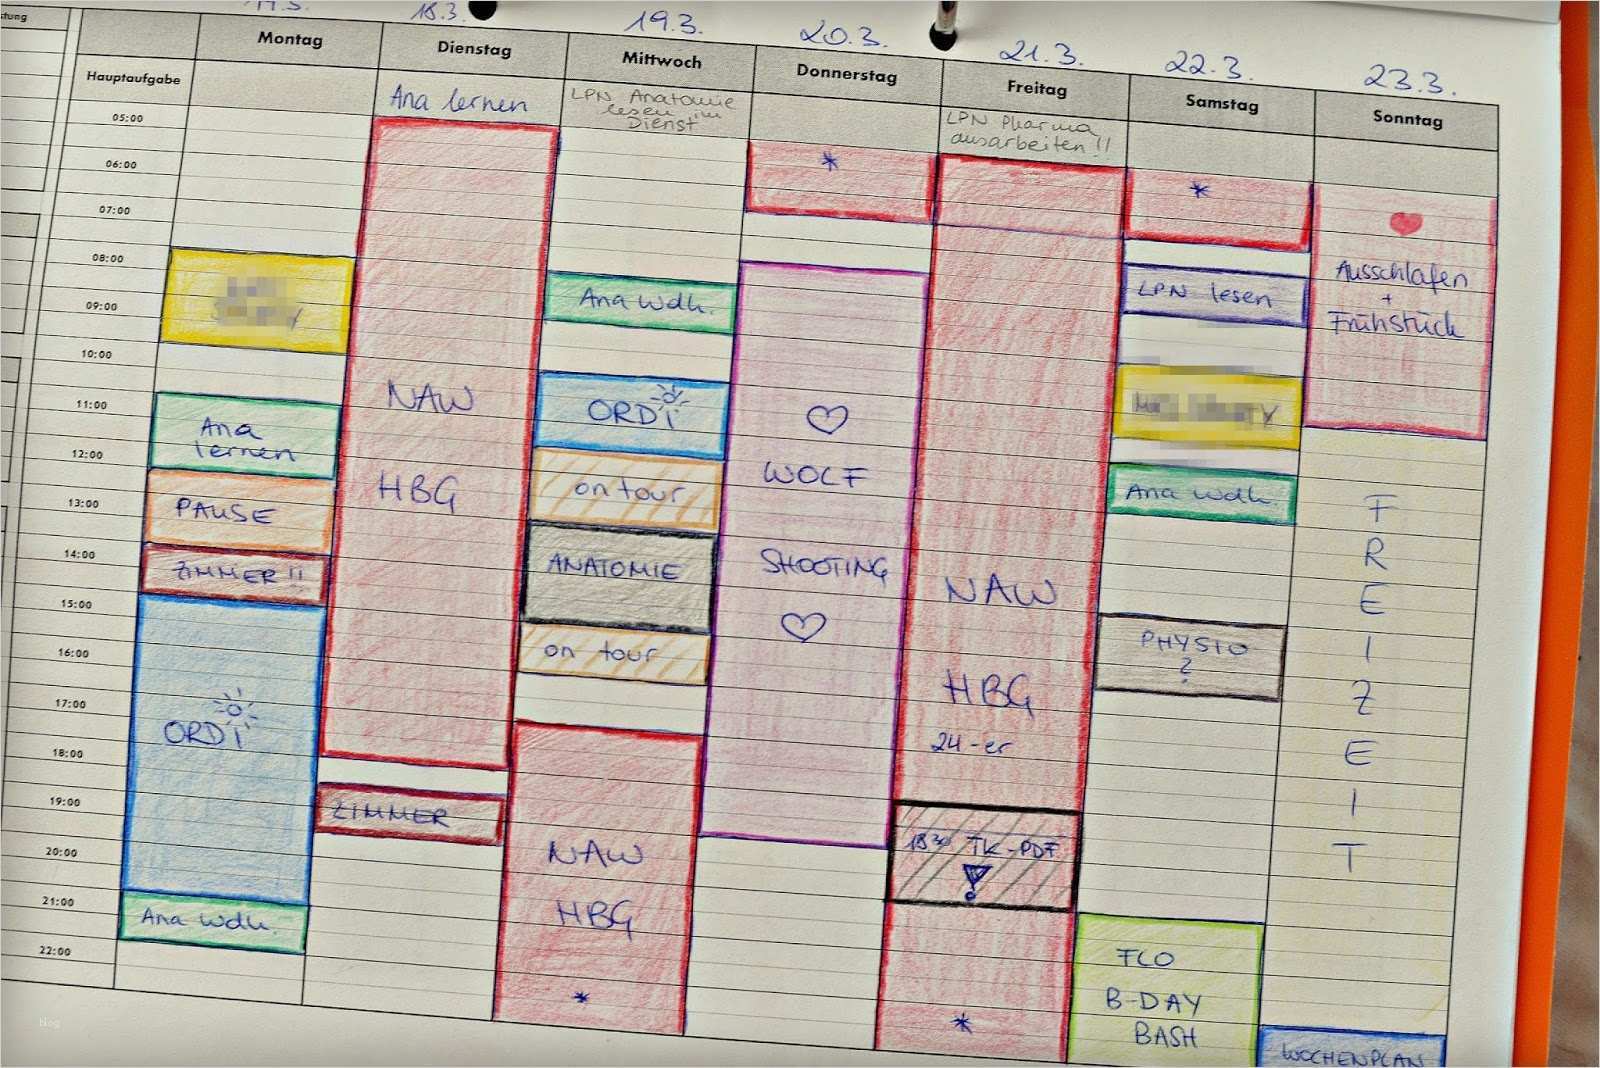 18.3.
19.3.
20.3.
21.3.
22.3.
23.3.
Montag
Dienstag
Mittwoch
Donnerstag
Freitag
Samstag
Sonntag
Hauptaufgabe
Ana lernen
LPN Anatomie
lesen im
Dienst
LPN Pharma
ausarbeiten!!
05:00
06:00
07:00
08:00
09:00
10:00
11:00
12:00
13:00
14:00
15:00
16:00
17:00
18:00
19:00
20:00
21:00
22:00
Ana
lernen
PAUSE
ZIMMER!!
ORDI
Ana wdh.
NAW
HBG
ZIMMER
Ana wdh.
ORDI
on tour
ANATOMIE
on tour
NAW
HBG
*
*
WOLF
SHOOTING
NAW
HBG
24-er
18³⁰ TK-PDF
!
*
*
LPN lesen
Ana wdh.
PHYSIO
?
FCO
B-DAY
BASH
Ausschlafen
+
Frühstück
F
R
E
I
Z
E
I
T
WOCHENPLAN
blog